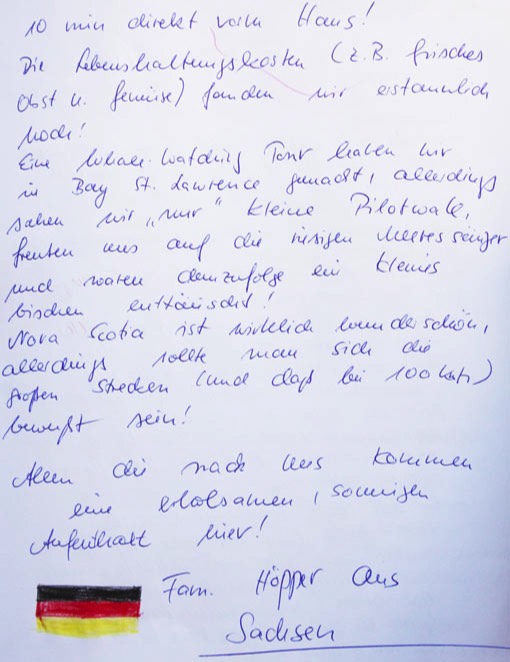 10 min direkt vorm Haus!
Die Lebenshaltungskosten (z.B. frisches
Obst u. Gemüse) fanden wir erstaunlich
hoch!
Eine Whale-Watching Tour haben wir
in Bay St. Lawrence gemacht, allerdings
sahen wir „nur“ kleine Pilotwale,
freuten uns auf die riesigen Meeressäuger
und waren demzufolge ein kleines
bischen enttäuscht!
Nova Scotia ist wirklich wunderschön,
allerdings sollte man sich die
großen Strecken (und das bei 100 km/h)
bewußt sein!
Allen die nach uns kommen
eine erholsamen, sonnigen
Aufenthalt hier!
Fam. Höpper aus
Sachsen